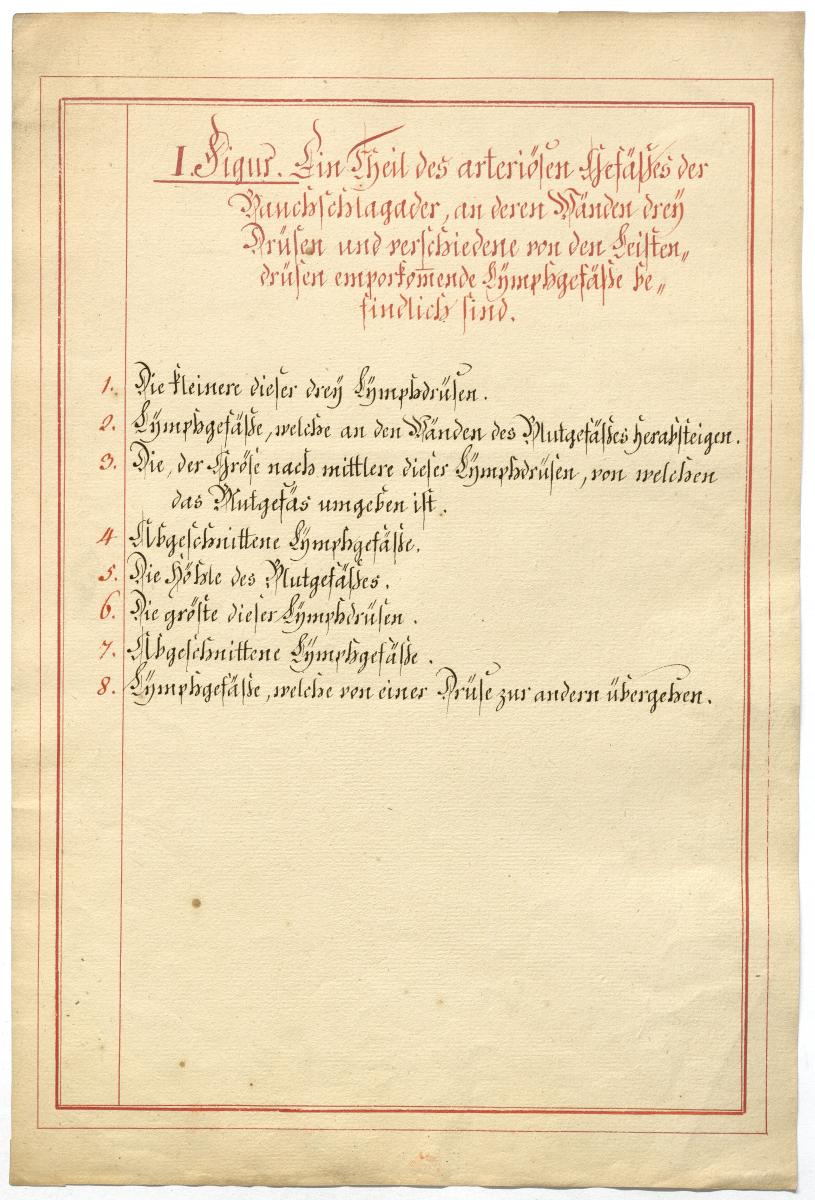 I. Figur. Ein Theil des arteriösen Gefäßes der
Bauchschlagader, an deren Wänden drey
Drüsen und verschiedene von den Leisten„
drüsen emporkom̅ende Lÿmphgefäße be„
findlich sind.
1. Die kleinere dieser dreÿ Lÿmphdrüsen.
2. Lÿmphgefäße, welche an den Wänden des Blutgefäßes herabsteigen.
3. Die, der Gröse nach mittlere dieser Lÿmphdrüsen, von welchen
das Blutgefäs umgeben ist.
4 Abgeschnittene Lÿmphgefäße.
5. Die Höhle des Blutgefäßes.
6. Die gröste dieser Lÿmphdrüsen.
7. Abgeschnittene Lÿmphgefäße.
8. Lÿmphgefäße, welche von einer Drüse zur andern übergehen.